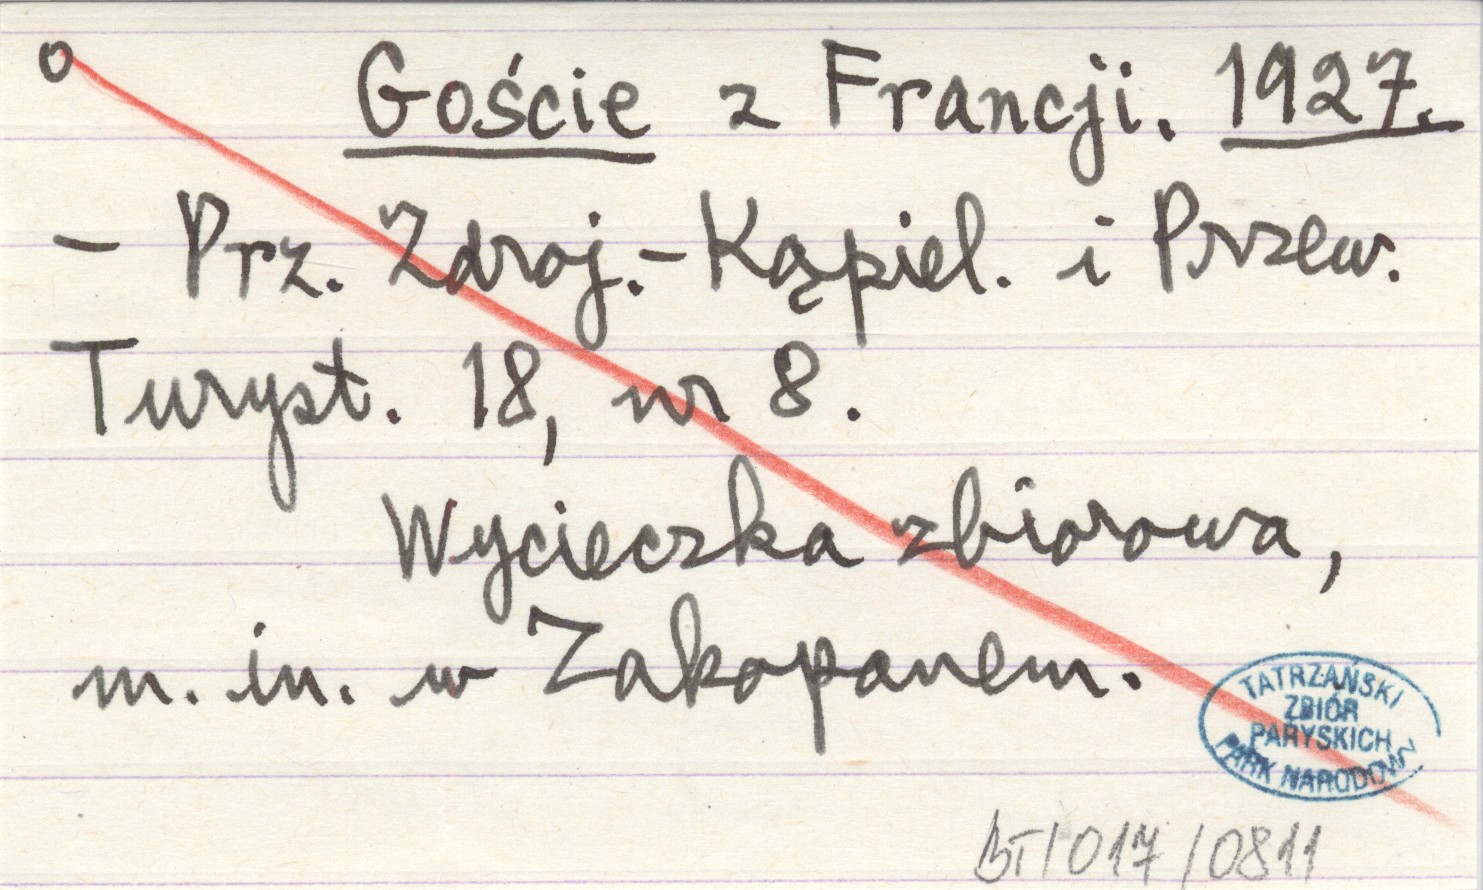 o Goście z Francji. 1927.
- Prz. Zdroj.-Kąpiel. i Przew.
Turyst. 18, nr 8.
Wycieczka zbiorowa,
m. in. w Zakopanem.
TATRZAŃSKI
ZBIÓR
PARYSKICH
PARK NARODOWY
BT/017/0811